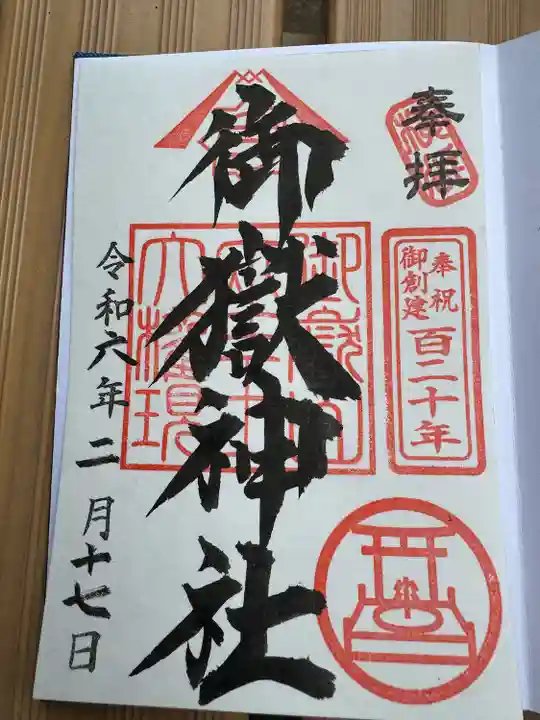 奉拝
奉祝
御創建
百二十年
御嶽神社
大権現
令和六年二月十七日